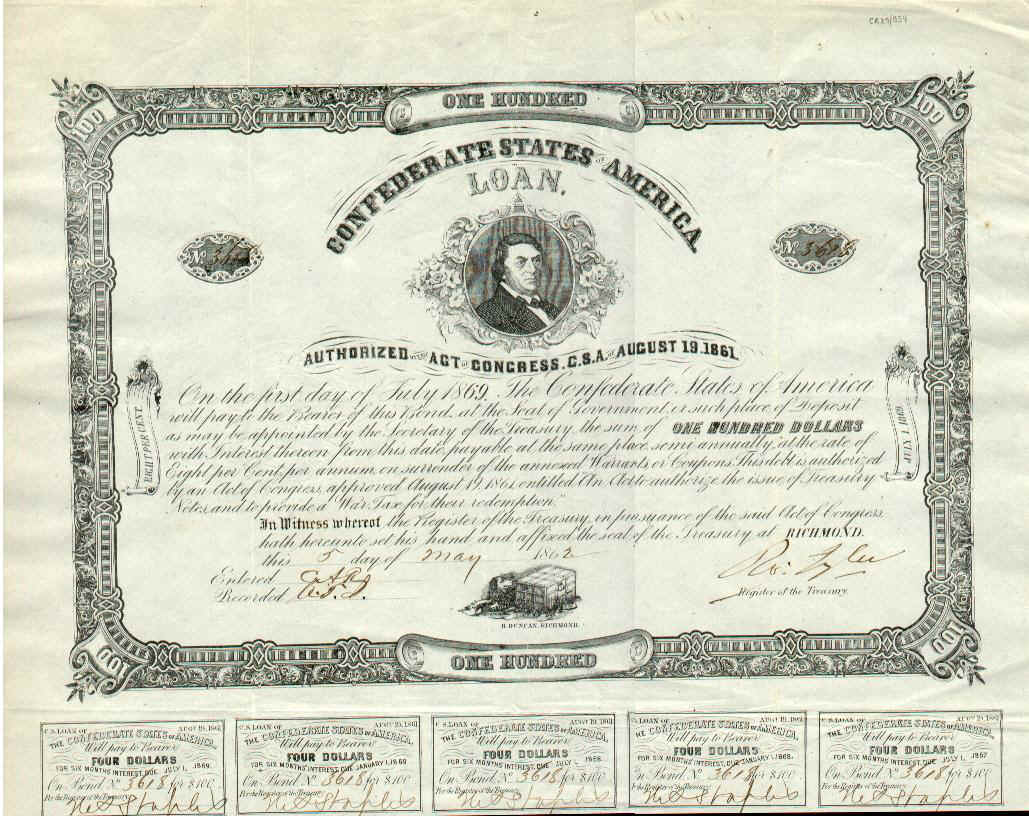 ONE HUNDRED
100
100
CONFEDERATE STATES OF AMERICA
LOAN,
No 3618
No 3618
AUTHORIZED BY THE ACT OF CONGRESS, C.S.A. OF AUGUST 19.1861.
EIGHT PER CENT
JULY 1, 1869
On the first day of July 1869, The Confederate States of America
will pay to the Bearer of this Bond, at the Seat of Government, or such place of Deposit
as may be appointed by the Secretary of the Treasury, the sum of ONE HUNDRED DOLLARS
with Interest thereon from this date, payable at the same place, semi-annually, at the rate of
Eight per Cent. per annum, on surrender of the annexed Warrants or Coupons. This debt is authorized
by an Act of Congress, approved August 19, 1861, entitled "An Act to authorize the issue of Treasury
Notes, and to provide a War Tax for their redemption."
In Witness whereof, the Register of the Treasury, in pursuance of the said Act of Congress,
hath hereunto set his hand and affixed the seal of the Treasury at RICHMOND.
this 5 day of May 1862
Entered
Recorded
Ro: Tyler
Register of the Treasury
B. DUNCAN, RICHMOND.
100
ONE HUNDRED
100
C.S. LOAN OF AUGT 19, 1861.
THE CONFEDERATE STATES OF AMERICA,
Will pay to Bearer
FOUR DOLLARS
FOR SIX MONTHS' INTEREST, DUE JULY 1, 1869.
On Bond No 3618 for $100
For the Register of the Treasury
C.S. LOAN OF AUGT 19, 1861.
THE CONFEDERATE STATES OF AMERICA,
Will pay to Bearer
FOUR DOLLARS
FOR SIX MONTHS' INTEREST, DUE JANUARY 1, 1869
On Bond No 3618 for $100
For the Register of the Treasury
C.S. LOAN OF AUGT 19, 1861.
THE CONFEDERATE STATES OF AMERICA,
Will pay to Bearer
FOUR DOLLARS
FOR SIX MONTHS' INTEREST, DUE JULY 1, 1868.
On Bond No 3618 for $100
For the Register of the Treasury
C.S. LOAN OF AUGT 19, 1861.
THE CONFEDERATE STATES OF AMERICA,
Will pay to Bearer
FOUR DOLLARS
FOR SIX MONTHS' INTEREST, DUE JANUARY 1, 1868.
On Bond No 3618 for $100
For the Register of the Treasury
C.S. LOAN OF AUGT 19, 1861
THE CONFEDERATE STATES OF AMERICA,
Will pay to Bearer
FOUR DOLLARS
FOR SIX MONTHS' INTEREST, DUE JULY 1, 1867
On Bond No 3618 for $100
For the Register of the Treasury